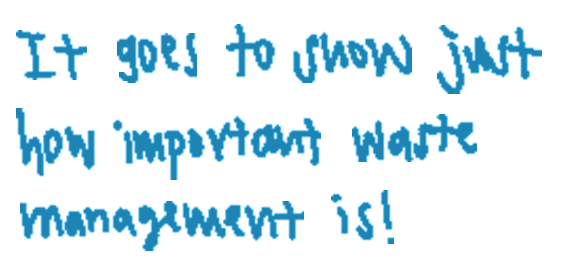 It goes to show just
how important waste
management is!